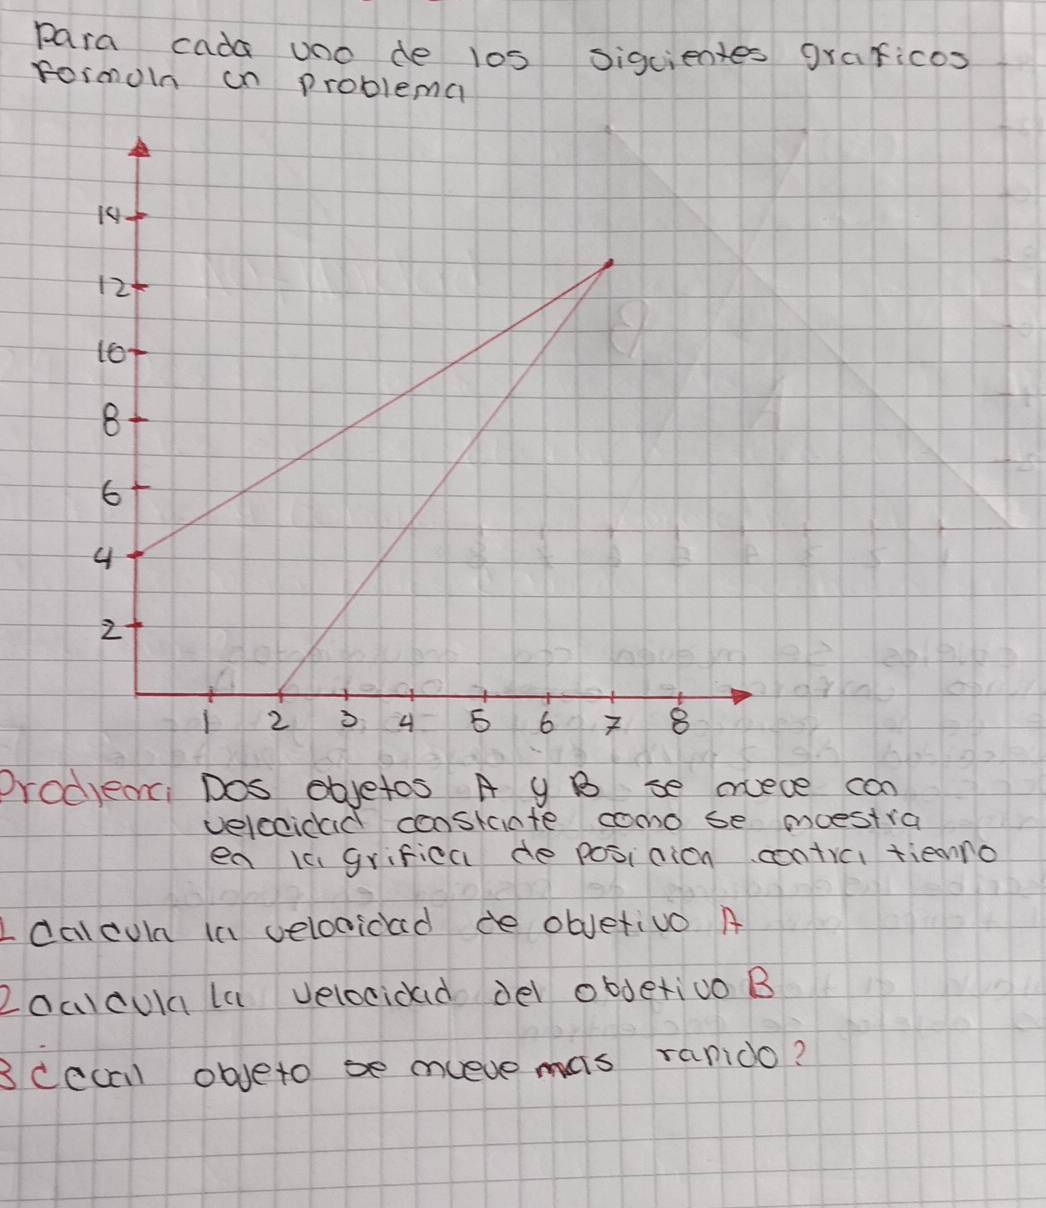 Para cada uno de los siguientes graficos
formoln un problema
14
12
10
8
6
4
2
1 2 3 4 5 6 7 8
Problema Dos objetos A y B se mueve con
velocidad constante como se muestra
en la grifica de posicion contra tiempo
1 calcula la velocidad de objetivo A
2 calcula la velocidad del objetivo B
3 ¿cual objeto se mueve mas rapido?